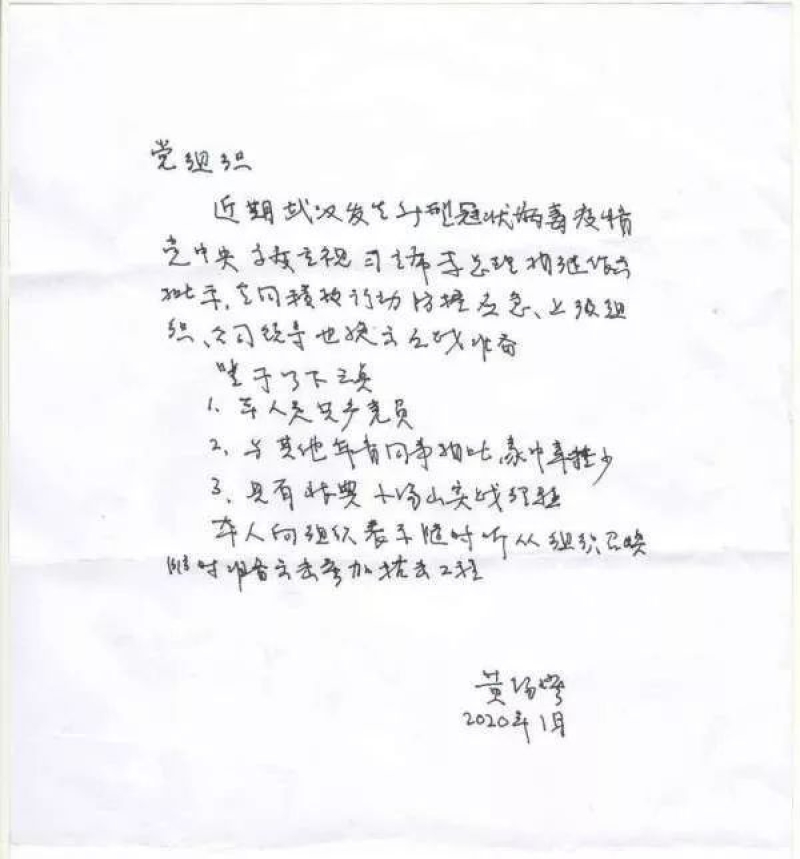 党组织
近期武汉发生新型冠状病毒疫情
党中央高度重视习主席李总理相继作出
批示,全国积极行动防控应急、上级组
织、公司领导也按立应战准备
鉴于以下三点
1、本人是共产党员
2、与其他年青同事相比,家中牵挂少
3、具有非典小汤山实战经验
本人向组织表示随时听从组织召唤
随时准备出击参加抗击工程
黄锡璆
2020年1月